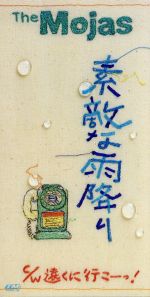 The Mojas
素敵な雨降り
C/W 遠くに行こーっ!